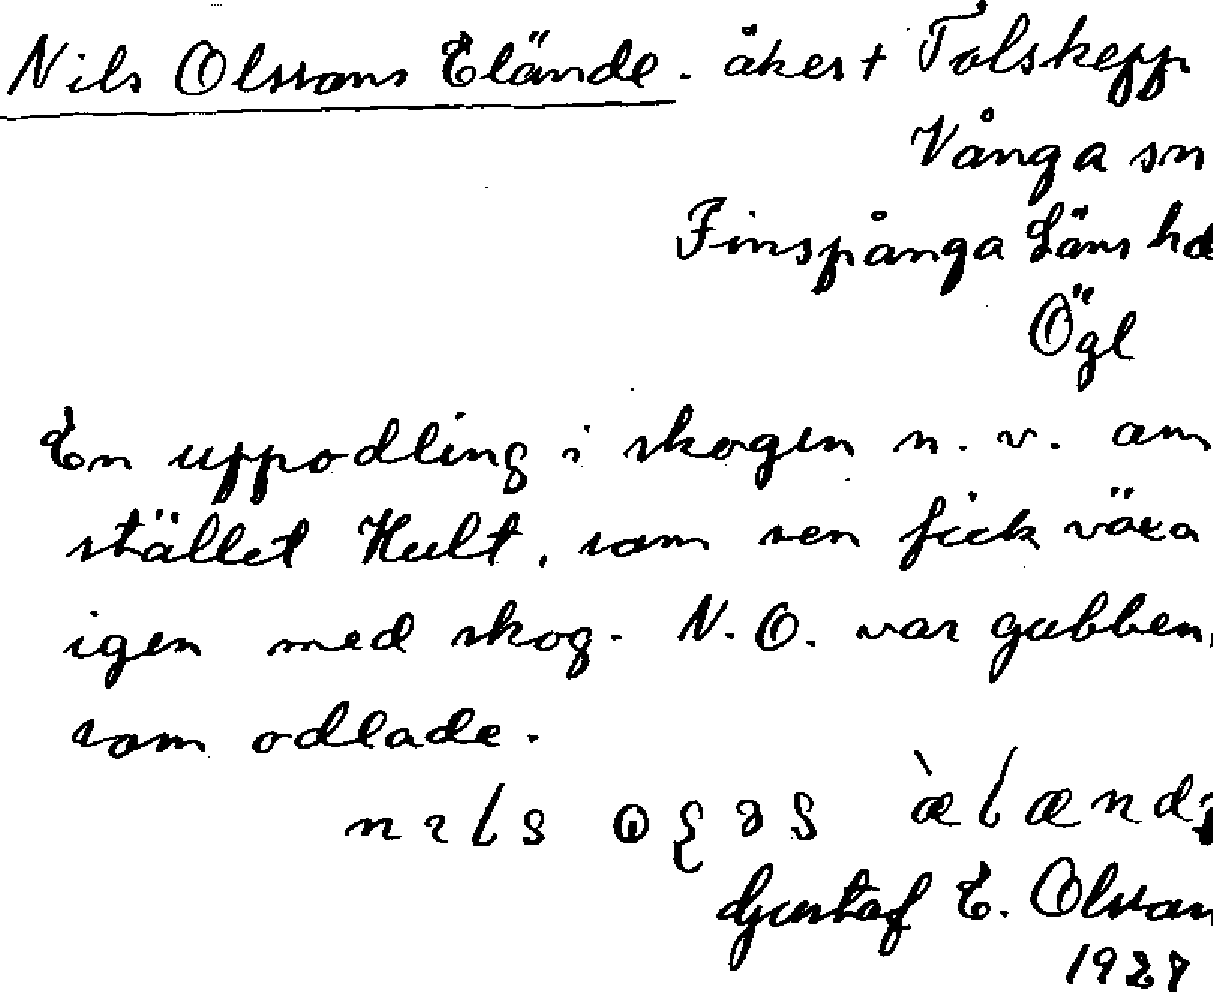 Nils Olssons Elände. åker + Tolskepp
Vånga sn
Finspånga Läns hd
Ögl
En uppodling i skogen n. v. om
stället Hult, som sen fick växa
igen med skog. N. O. var gubben,
som odlade.
Gustaf E. Olsson